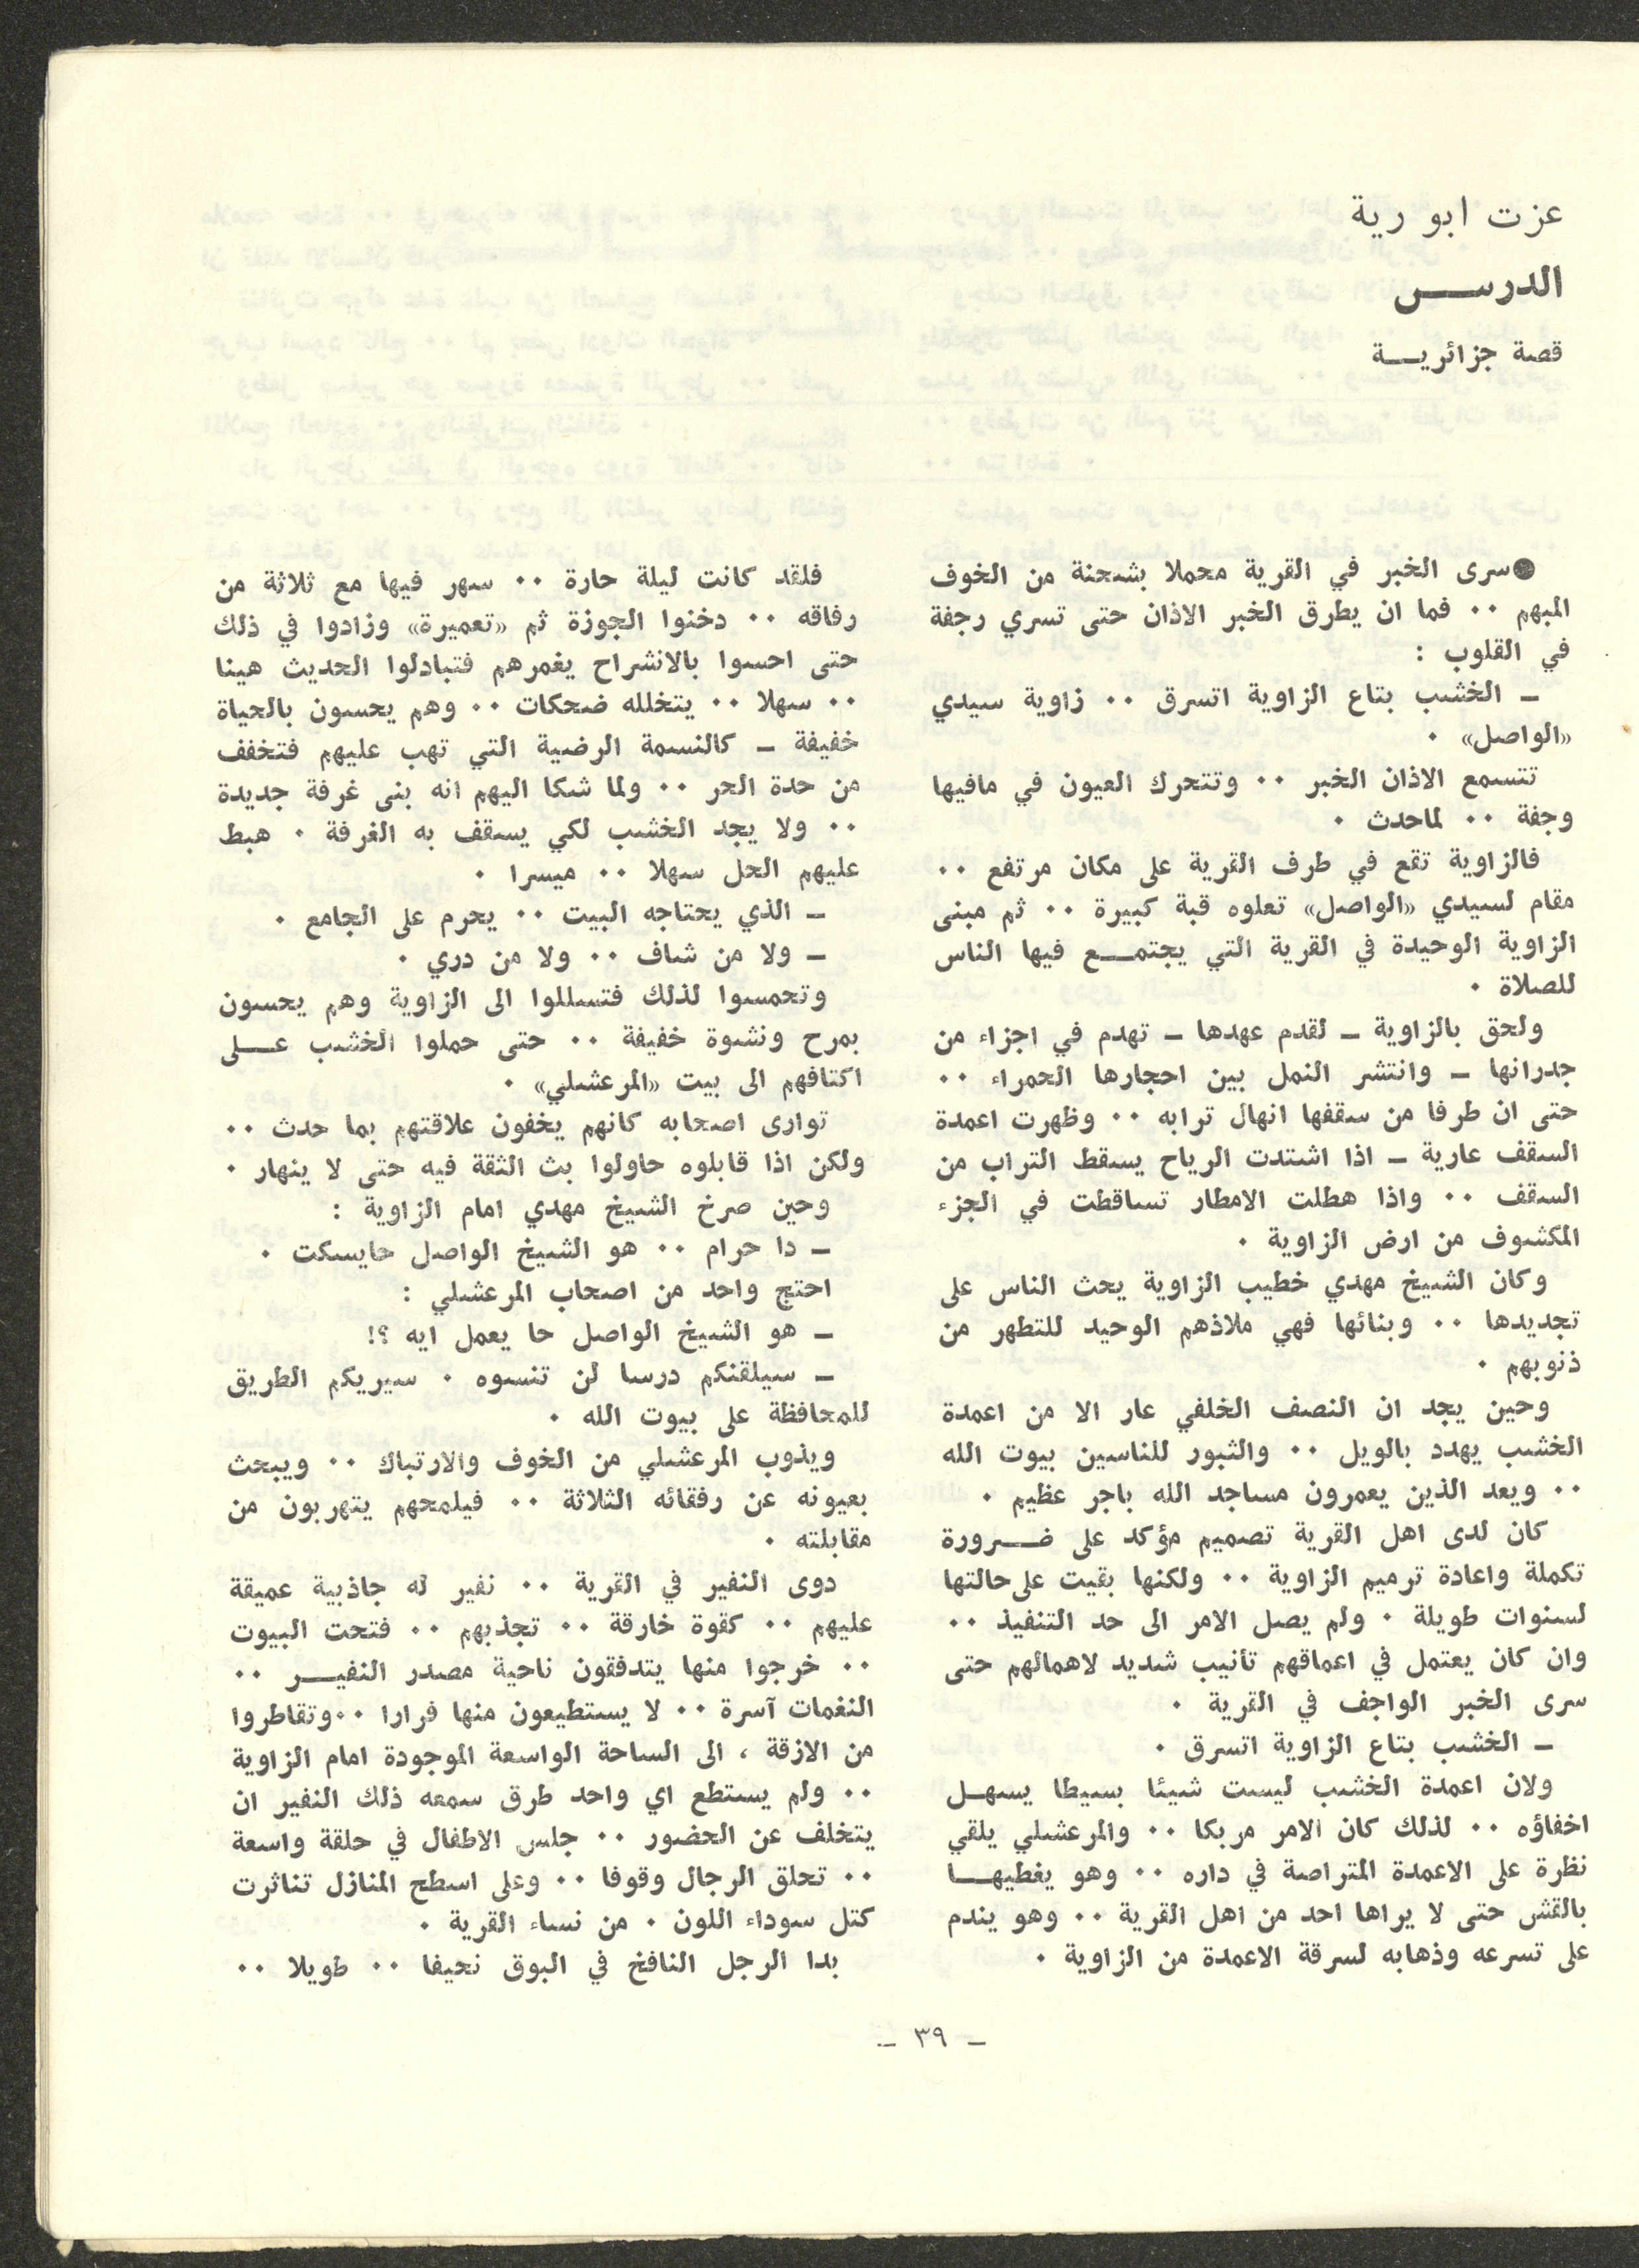 عزت ابو رية
الدرس
قصة جزائرية
●سرى الخبر في القرية محملا بشحنة من الخوف
المبهم ٠٠ فما ان يطرق الخبر الاذان حتى تسري رجفة
في القلوب :
ـ الخشب بتاع الزاوية اتسرق ٠٠ زاوية سيدي
«الواصل» ٠
تتسمع الاذان الخبر ٠٠ وتتحرك العيون في مافيها
وجفة ٠٠ لماحدث ٠
فالزاوية تقع في طرف القرية على مكان مرتفع ٠٠
مقام لسيدي «الواصل» تعلوه قبة كبيرة ٠٠ ثم مبنى
الزاوية الوحيدة في القرية التي يجتمـــع فيها الناس
للصلاة ٠
ولحق بالزاوية ـ لقدم عهدها ـ تهدم في اجزاء من
جدرانها ـ وانتشر النمل بين احجارها الحمراء ٠٠
حتى ان طرفا من سقفها انهال ترابه ٠٠ وظهرت اعمدة
السقف عارية ـ اذا اشتدت الرياح يسقط التراب من
السقف ٠٠ واذا هطلت الامطار تساقطت في الجزء
المكشوف من ارض الزاوية ٠
وكان الشيخ مهدي خطيب الزاوية يحث الناس على
تجديدها ٠٠ وبنائها فهي ملاذهم الوحيد للتطهر من
ذنوبهم ٠
وحين يجد ان النصف الخلفي عار الا من اعمدة
الخشب يهدد بالويل ٠٠ والثبور للناسين بيوت الله
٠٠ ويعد الذين يعمرون مساجد الله باجر عظيم ٠
كان لدى اهل القرية تصميم مؤكد على ضــرورة
تكملة واعادة ترميم الزاوية ٠٠ ولكنها بقيت على حالتها
لسنوات طويلة ٠ ولم يصل الامر الى حد التنفيذ ٠٠
وان كان يعتمل في اعماقهم تأنيب شديد لاهمالهم حتى
سرى الخبر الواجف في القرية ٠
ـ الخشب بتاع الزاوية اتسرق ٠
ولان اعمدة الخشب ليست شيئا بسيطا يسهــل
اخفاؤه ٠٠ لذلك كان الامر مربكا ٠٠ والمرعشلي يلقي
نظرة على الاعمدة المتراصة في داره ٠٠ وهو يغطيهــا
بالقش حتى لا يراها احد من اهل القرية ٠٠ وهو يندم
على تسرعه وذهابه لسرقة الاعمدة من الزاوية ٠
فلقد كانت ليلة حارة ٠٠ سهر فيها مع ثلاثة من
رفاقه ٠٠ دخنوا الجوزة ثم «تعميرة» وزادوا في ذلك
حتى احسوا بالانشراح يغمرهم فتبادلوا الحديث هينا
٠٠ سهلا ٠٠ يتخلله ضحكات ٠٠ وهم يحسون بالحياة
خفيفة ـ كالنسمة الرضية التي تهب عليهم فتخفف
من حدة الحر ٠٠ ولما شكا اليهم انه بنى غرفة جديدة
٠٠ ولا يجد الخشب لكي يسقف به الغرفة ٠ هبط
عليهم الحل سهلا ٠٠ ميسرا ٠
ـ الذي يحتاجه البيت ٠٠ يحرم على الجامع ٠
ـ ولا من شاف ٠٠ ولا من دري ٠
وتحمسوا لذلك فتسللوا الى الزاوية وهم يحسون
بمرح ونشوة خفيفة ٠٠ حتى حملوا الخشب عــلى
اكتافهم الى بيت «المرعشلي» ٠
توارى اصحابه كانهم يخفون علاقتهم بما حدث ٠٠
ولكن اذا قابلوه حاولوا بث الثقة فيه حتى لا ينهار ٠
وحين صرخ الشيخ مهدي امام الزاوية :
ـ دا حرام ٠٠ هو الشيخ الواصل حايسكت ٠
احتج واحد من اصحاب المرعشلي :
ـ هو الشيخ الواصل حا يعمل ايه ؟!
ـ سيلقنكم درسا لن تنسوه ٠ سيريكم الطريق
للمحافظة على بيوت الله ٠
ويذوب المرعشلي من الخوف والارتباك ٠٠ ويبحث
بعيونه عن رفقائه الثلاثة ٠٠ فيلمحهم يتهربون من
مقابلته ٠
دوى النفير في القرية ٠٠ نفير له جاذبية عميقة
عليهم ٠٠ كقوة خارقة ٠٠ تجذبهم ٠٠ فتحت البيوت
٠٠ خرجوا منها يتدفقون ناحية مصدر النفيــر ٠٠
النغمات آسرة ٠٠ لا يستطيعون منها فرارا ٠٠وتقاطروا
من الازقة ، الى الساحة الواسعة الموجودة امام الزاوية
٠٠ ولم يستطع اي واحد طرق سمعه ذلك النفير ان
يتخلف عن الحضور ٠٠ جلس الاطفال في حلقة واسعة
٠٠ تحلق الرجال وقوفا ٠٠ وعلى اسطح المنازل تناثرت
كتل سوداء اللون ٠ من نساء القرية ٠
بدا الرجل النافخ في البوق نحيفا ٠٠ طويلا ٠٠
ـ ٣٩ ـ